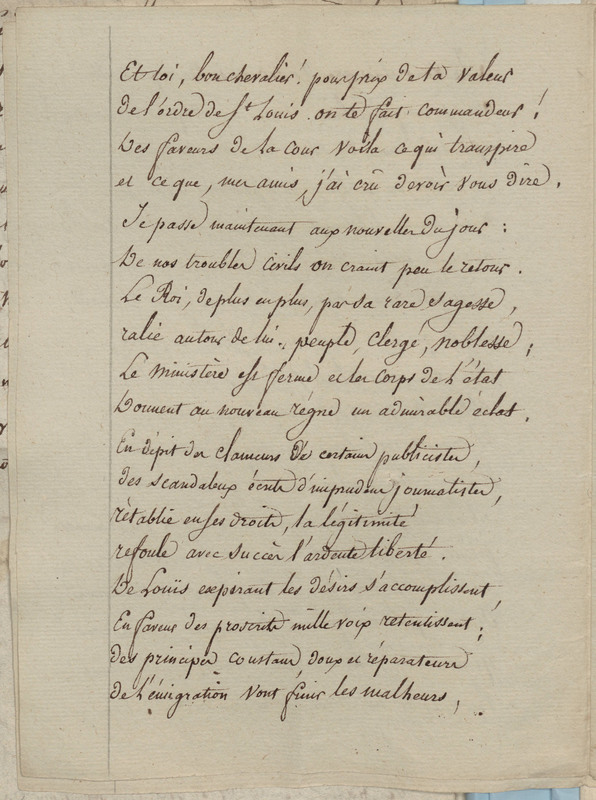 Et toi, bon chevalier! pour prix de ta valeur
de l'ordre de St Louis on te fait commandeur!
Des faveurs de la cour voila ce qui transpire
et ce que, mes amis, j'ai crû devoir vous dire.
Je passe maintenant aux nouvelles du jour :
De nos troubles civils on craint peu le retour.
Le Roi, de plus en plus, par sa rare sagesse,
ralie autour de lui peuple, clergé, noblesse ;
Le ministère est ferme et les corps de l'état
Donnent au nouveau régne un admirable éclat.
En dépit des clameurs de certains publicistes,
des scandaleux écrits d'imprudens journalistes,
rétablie en ses droits, la légitimité
refoule avec succès l'ardente liberté.
De Louis expirant les désirs s'accomplissent,
En faveur des proscrits mille voix retentissent ;
des principes constans doux et réparateurs
de l'émigration vont finir les malheurs,